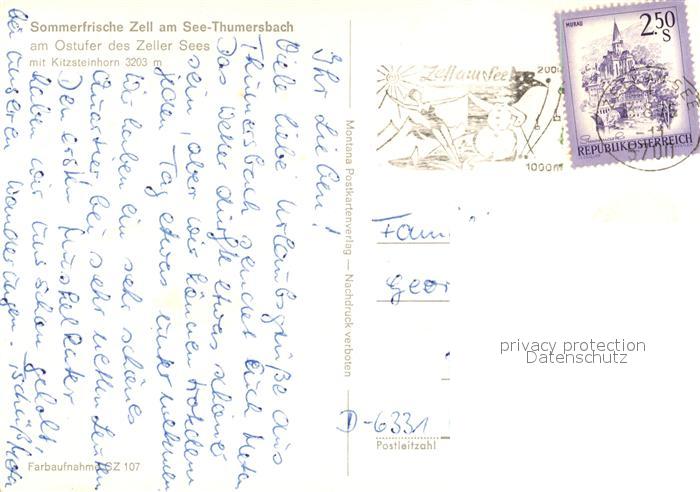 Sommerfrische Zell am See-Thumersbach
am Ostufer des Zeller Sees
mit Kitzsteinhorn 3203 m
Ihr Lieben!
Viele liebe Urlaubsgrüße aus
Thumersbach sendet Euch Meta
Das Wetter dürfte etwas schöner
sein, aber wir können trotzdem
jeden Tag etwas unternehmen
Wir haben ein sehr schönes
Quartier bei sehr netten Leuten
Den ersten Muskelkater
haben wir uns schon geholt,
bei unseren Wanderungen.
Farbaufnahme CZ 107
Montana Postkartenverlag — Nachdruck verboten
Zell am See
1000m
MURAU
2.50
S
REPUBLIK ÖSTERREICH
5700
Fami
Geor
D-6331
Postleitzahl
privacy protection
Datenschutz